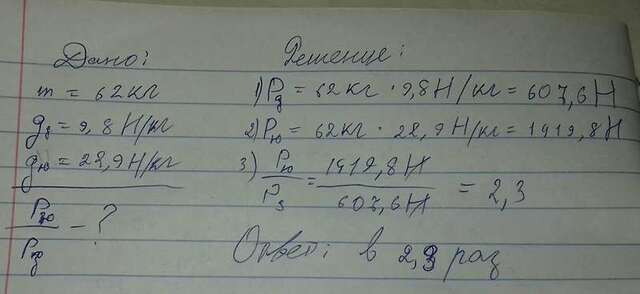 Дано:
m = 62кг
gз = 9,8 Н/кг
gю = 22,9 Н/кг
Pю/Pз - ?
Решение:
1) Pз = 62кг · 9,8 Н/кг = 607,6 Н
2) Pю = 62кг · 22,9 Н/кг = 1419,8 Н
3) Pю/Pз = 1419,8 Н/607,6 Н = 2,3
Ответ: в 2,3 раз